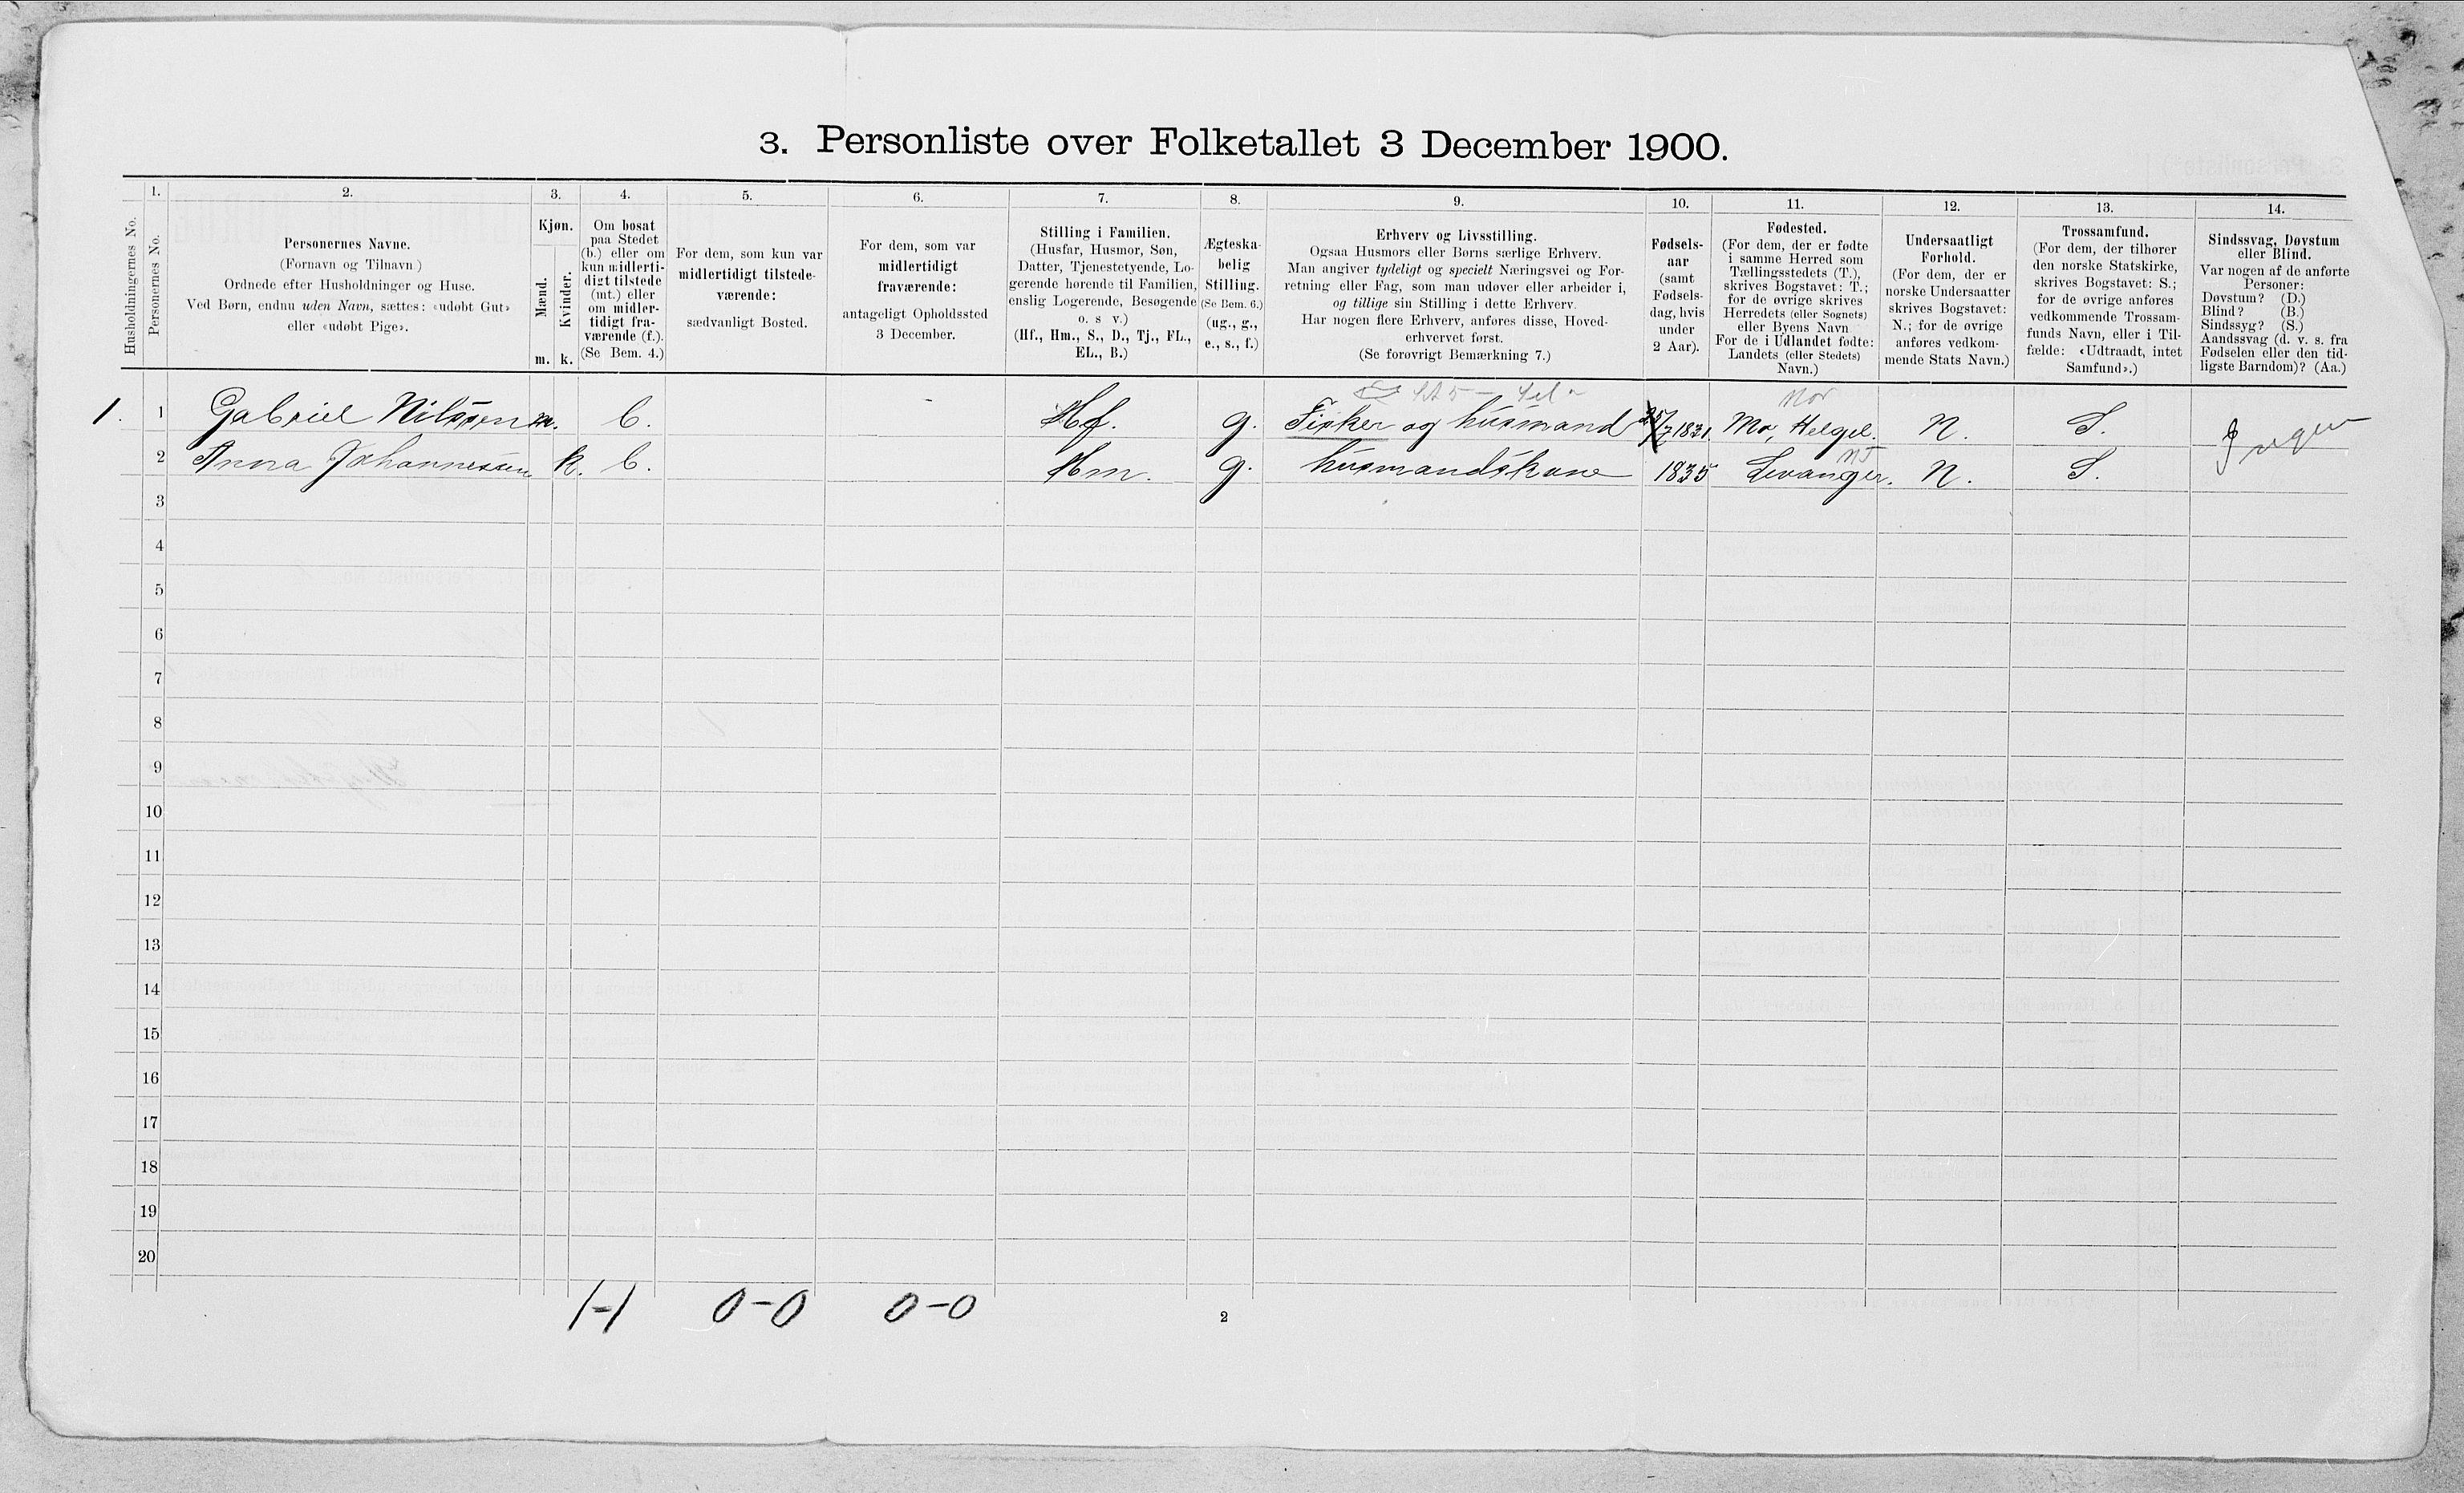 3. Personliste over Folketallet 3 December 1900.
Husholdningernes No.
1.
Personernes No.
2.
Personernes Navne.
(Fornavn og Tilnavn.)
Ordnede efter Husholdninger og Huse.
Ved Børn, endnu uden Navn, sættes: «udøbt Gut»
eller «udøbt Pige».
3.
Kjøn.
Mænd.
Kvinder.
m. k.
4.
Om bosat
paa Stedet
(b.) eller om
kun midlerti-
digt tilstede
(mt.) eller
om midler-
tidigt fra-
værende (f.).
(Se Bem. 4.)
5.
For dem, som kun var
midlertidigt tilstede-
værende:
sædvanligt Bosted.
6.
For dem, som var
midlertidigt
fraværende:
antageligt Opholdssted
3 December.
7.
Stilling i Familien.
(Husfar, Husmor, Søn,
Datter, Tjenestetyende, Lo-
gerende hørende til Familien,
enslig Logerende, Besøgende
o. s v.)
(Hf., Hm., S., D., Tj., FL.,
EL., B.)
8.
Ægteska-
belig
Stilling.
(Se Bem. 6.)
(ug., g.,
e., s., f.)
9.
Erhverv og Livsstilling.
Ogsaa Husmors eller Børns særlige Erhverv.
Man angiver tydeligt og specielt Næringsvei og For-
retning eller Fag, som man udøver eller arbeider i,
og tillige sin Stilling i dette Erhverv.
Har nogen flere Erhverv, anføres disse, Hoved-
erhvervet først.
(Se forøvrigt Bemærkning 7.)
10.
Fødsels-
aar
(samt
Fødsels-
dag, hvis
under
2 Aar).
11.
Fødested.
(For dem, der er fødte
i samme Herred som
Tællingsstedets (T.),
skrives Bogstavet: T.;
for de øvrige skrives
Herredets (eller Sognets)
eller Byens Navn
For de i Udlandet fødte:
Landets (eller Stedets)
Navn.)
12.
Undersaatligt
Forhold.
(For dem, der er
norske Undersaatter
skrives Bogstavet:
N.; for de øvrige
anføres vedkom-
mende Stats Navn.)
13.
Trossamfund.
(For dem, der tilhører
den norske Statskirke,
skrives Bogstavet: S.;
for de øvrige anføres
vedkommende Trossam-
funds Navn, eller i Til-
fælde: «Udtraadt, intet
Samfund».)
14.
Sindssvag, Døvstum
eller Blind.
Var nogen af de anførte
Personer:
Døvstum? (D.)
Blind? (B.)
Sindssyg? (S.)
Aandssvag (d. v. s. fra
Fødselen eller den tid-
ligste Barndom)? (Aa.)
Nor
1. 1 Gabriel Nilssen m. b. Hf. g. Fisker og husmand 1831 Mo, Helgel. N. S. Ingen
NT
2 Anna Johannessen k. b. Hm. g. husmandskone 1835 Levanger. N. S.
3
4
5
6
7
8
9
10
11
12
13
14
15
16
17
18
19
20
1-1 0-0 0-0
2